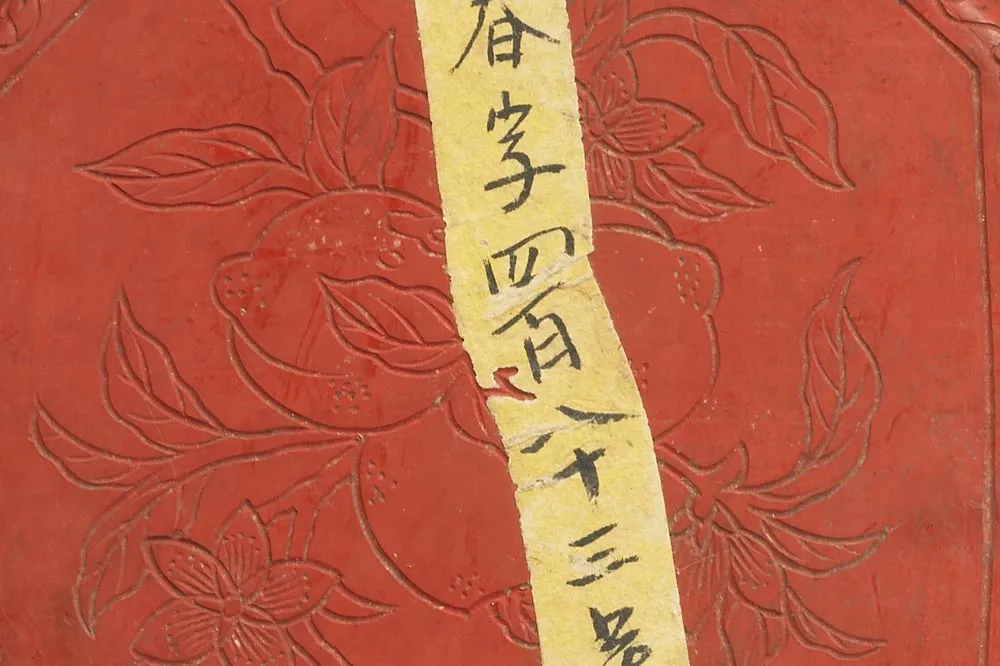 春字四百八十三号